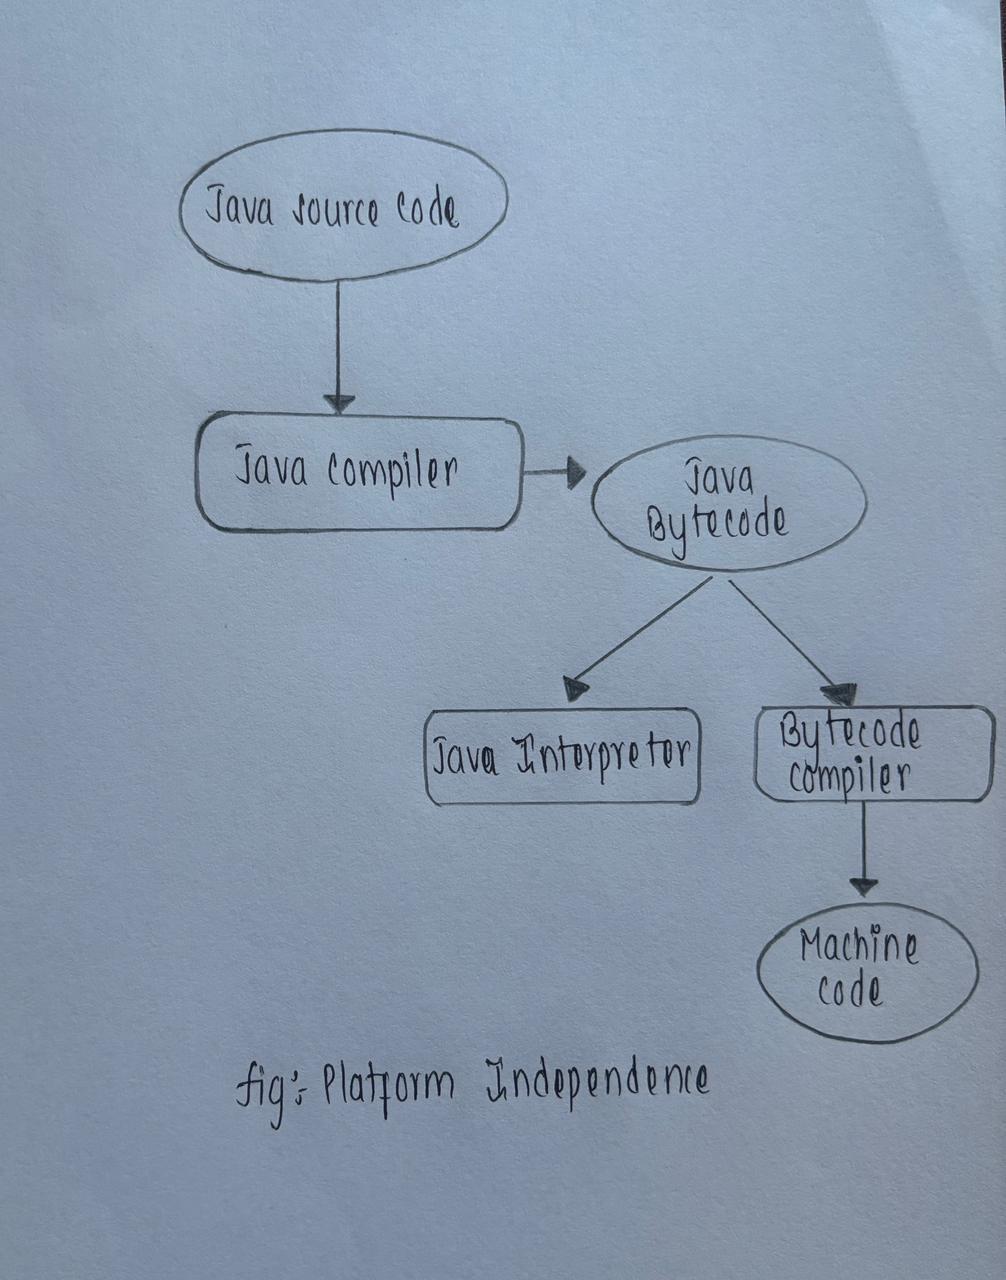 Java source code
Java compiler
Java
Bytecode
Java Interpreter
Bytecode
compiler
Machine
code
fig:- Platform Independence